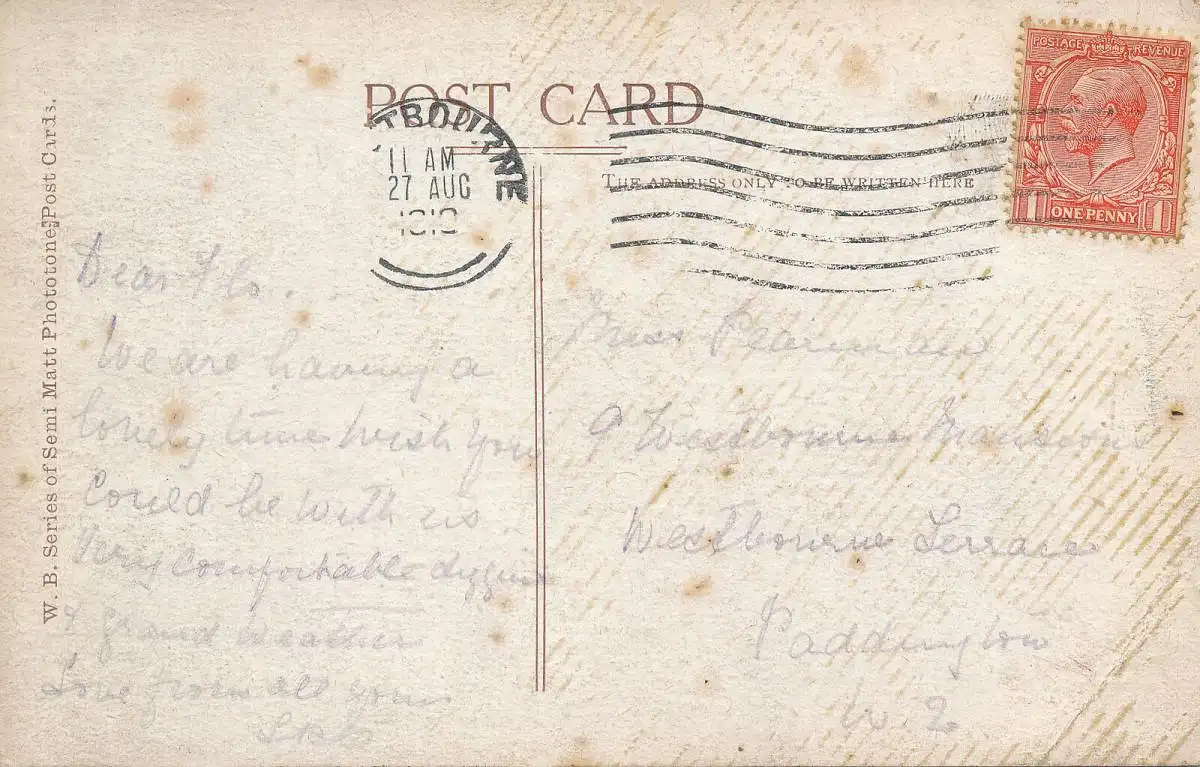 POST CARD
THE ADDRESS ONLY TO BE WRITTEN HERE
POSTAGE REVENUE
1 ONE PENNY 1
TBOURNE
11 AM
27 AUG
W. B. Series of Semi Matt Phototone Post Cards.
Dear Flo.
We are having a
lovely time wish you
could be with us
Very Comfortable diggins
& grand weather
Love from all yours
Miss
9 Westbourne Mansions
Westbourne Terrace
Paddington
W. 2